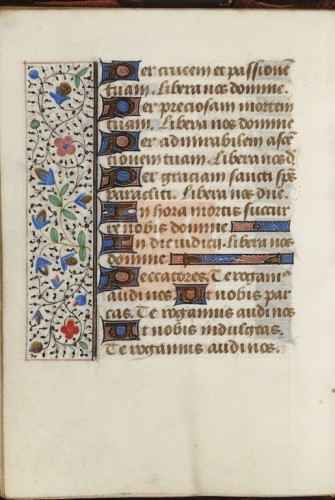 Per crucem et passionē
tuam. Libera nos domine.
Per preciosam mortem
tuam. Libera nos domine
Per admirabilem ascē
cionem tuam. Libera nos d
Per graciam sancti sp̄s
paracliti. Libera nos dn̄e.
In hora mortis succur
re nobis domine
In die iudicij. libera nos
domine
Peccatores. Te rogamꝰ
audi nos Ut nobis par
cas. Te rogamus audi nos
Ut nobis indulgeas.
Te rogamus audi nos.